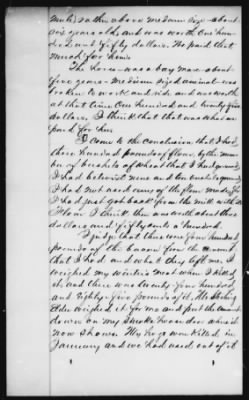 mule) rather above medium size - about
six years old, and was worth one hun-
dred and fifty dollars. He paid that
much for him.
The horse was a bay mare - about
five years - medium sized animal - was
broken to work and ride and was worth
at that time one hundred and twenty five
dollars. I think that that was what was
paid for her.
I come to the conclusion that I had
three hundred pounds of flour, by the num-
ber of bushels of wheat that I had ground.
I had between nine and ten bushels ground,
I had not used any of the flour
I had just got back from the mill with it.
Flour I think then was worth about three
dollars and fifty cents a hundred.
I judge that there was four hundred
pounds of the bacon from the amount
that I had and what they left me. I
weighed my winter's meat when I killed
it and there was twenty four hundred
and eighty-five pounds of it. Mr.
Elder weighed it for me and put the amount
down on my smoke house door which is
now shown. My hogs were killed in
January and we had used out of it